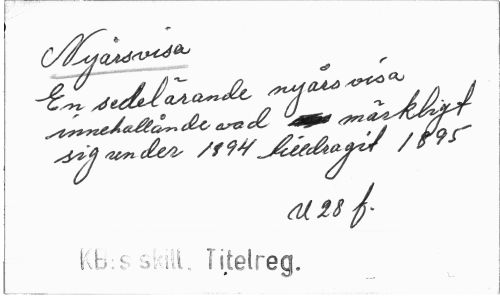 Nyårsvisa
En sedelärande nyårsvisa
innehållånde vad märkligt
sig under 1894 tilldragit 1895
U 28 f.
KB:s skill. Titelreg.